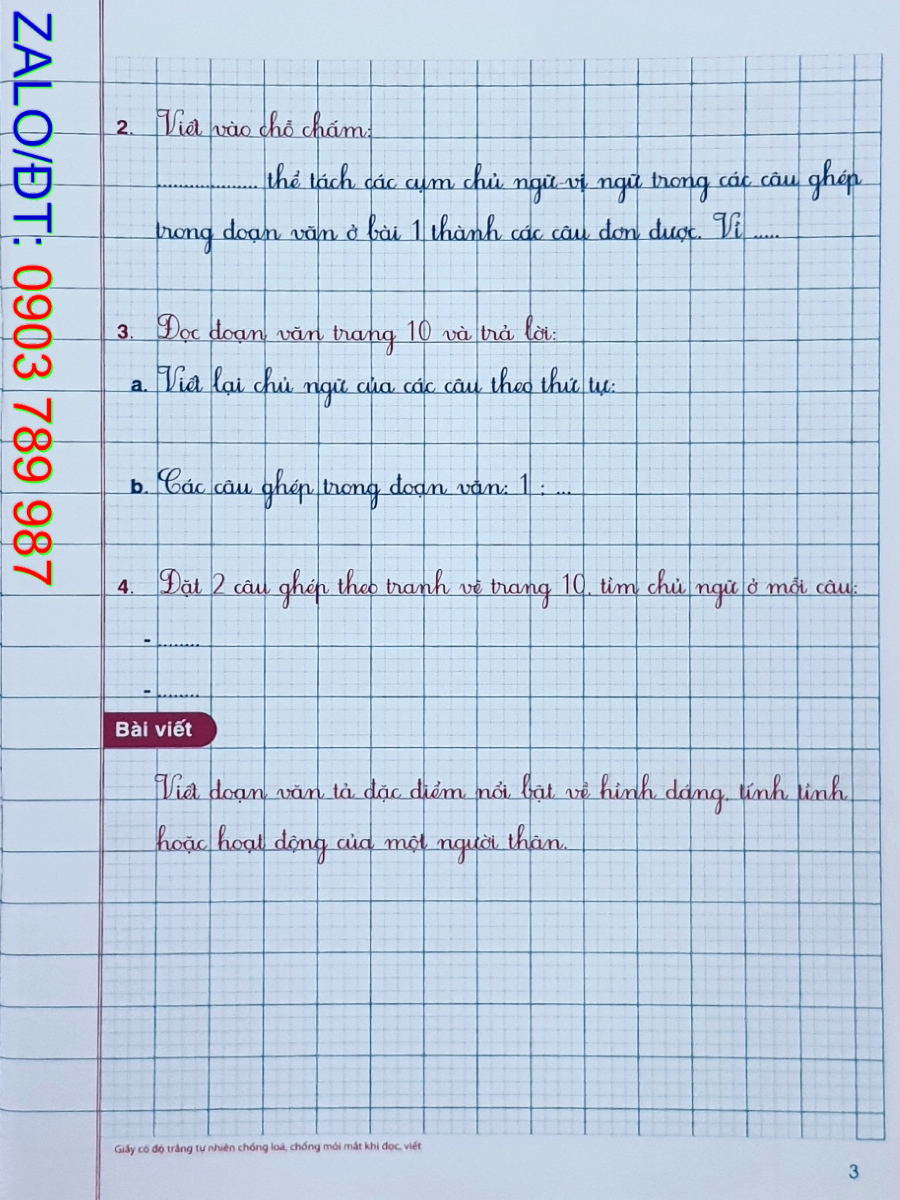 ZALO/ĐT: 0903 789 987
2. Viết vào chỗ chấm:
.................. thể tách các cụm chủ ngữ-vị ngữ trong các câu ghép
trong đoạn văn ở bài 1 thành các câu đơn được. Vì .....
3. Đọc đoạn văn trang 10 và trả lời:
a. Viết lại chủ ngữ của các câu theo thứ tự:
b. Các câu ghép trong đoạn văn: 1 : ...
4. Đặt 2 câu ghép theo tranh vẽ trang 10, tìm chủ ngữ ở mỗi câu:
- ........
- ........
Bài viết
Viết đoạn văn tả đặc điểm nổi bật về hình dáng, tính tình
hoặc hoạt động của một người thân.
Giấy có độ trắng tự nhiên chống loá, chống mỏi mắt khi đọc, viết
3